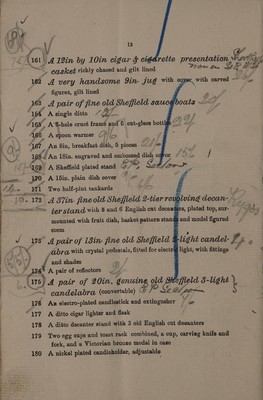 13
161 A 12in by 10in cigar & cigarette presentation
casket richly chased and gilt lined
162 A very handsome 9in jug with cover, with carved
figures, gilt lined
163 A pair of fine old Sheffield sauce boats
164 A single ditto
165 A 6-hole cruet frame and 6 cut-glass bottles
166 A spoon warmer
167 An 8in. breakfast dish, 5 pieces
168 An 18in. engraved and embossed dish cover
169 A Sheffield plated stand
170 A 15in. plain dish cover
171 Two half-pint tankards
172 A 37in fine old Sheffield 2-tier revolving decanter stand with 8 and 6 English cut decanters, plated top, surmounted with fruit dish, basket pattern stands and model figured
stem
173 A pair of 13in. fine old Sheffield 2-light candelabra with crystal pedestals, fitted for electric light, with fittings
and shades
174 A pair of reflectors
175 A pair of 20in. genuine old Sheffield 3-light
candelabra (convertable)
176 An electro-plated candlestick and extinguisher
177 A ditto cigar lighter and flask
178 A ditto decanter stand with 3 old English cut decanters
179 Two egg cups and toast rack combined, a cup, carving knife and
fork, and a Victorian bronze medal in case
180 A nickel plated candleholder, adjustable